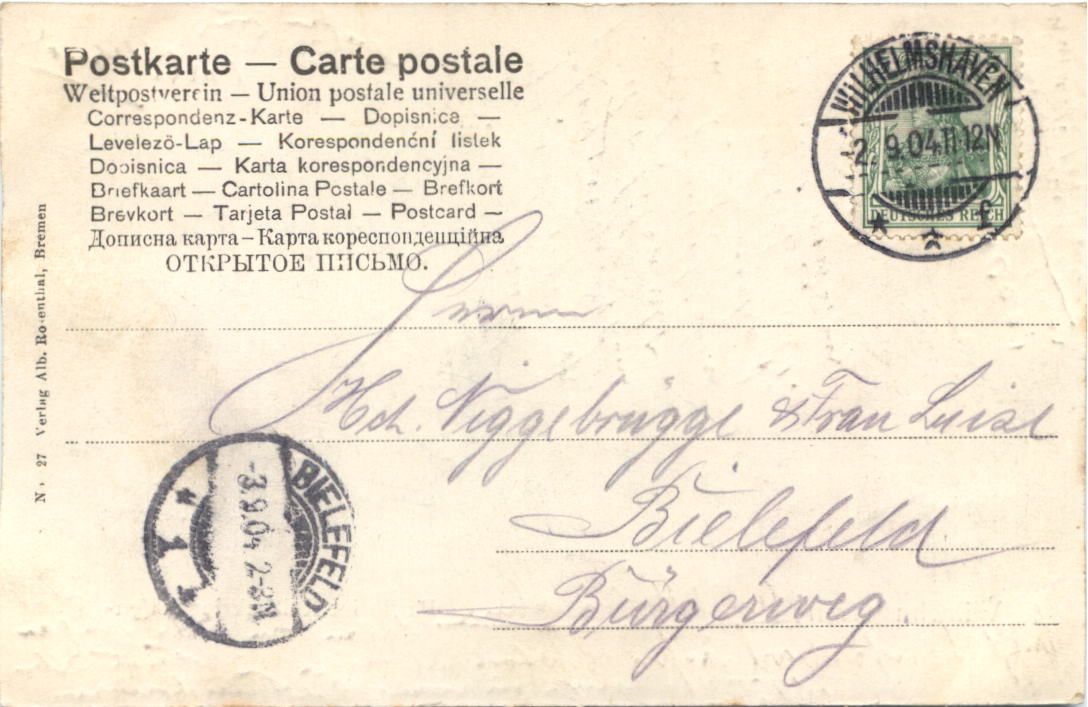 Postkarte — Carte postale
Weltpostverein — Union postale universelle
Correspondenz-Karte — Dopisnice —
Levelezö-Lap — Korespondenční listek
Dopisnica — Karta korespondencyjna —
Briefkaart — Cartolina Postale — Brefkort
Brevkort — Tarjeta Postal — Postcard —
Дописна карта — Карта кореспонденційна
ОТКРЫТОЕ ПИСЬМО.
WILHELMSHAVEN
-2.9.04.11-12N
* * f
DEUTSCHES REICH
No 27 Verlag Alb. Rosenthal, Bremen
Herrn
Hch. Niggebrügge & Frau Luise
Bielefeld
Bürgerweg
BIELEFELD
-3.9.04 2-3N
* 1 *